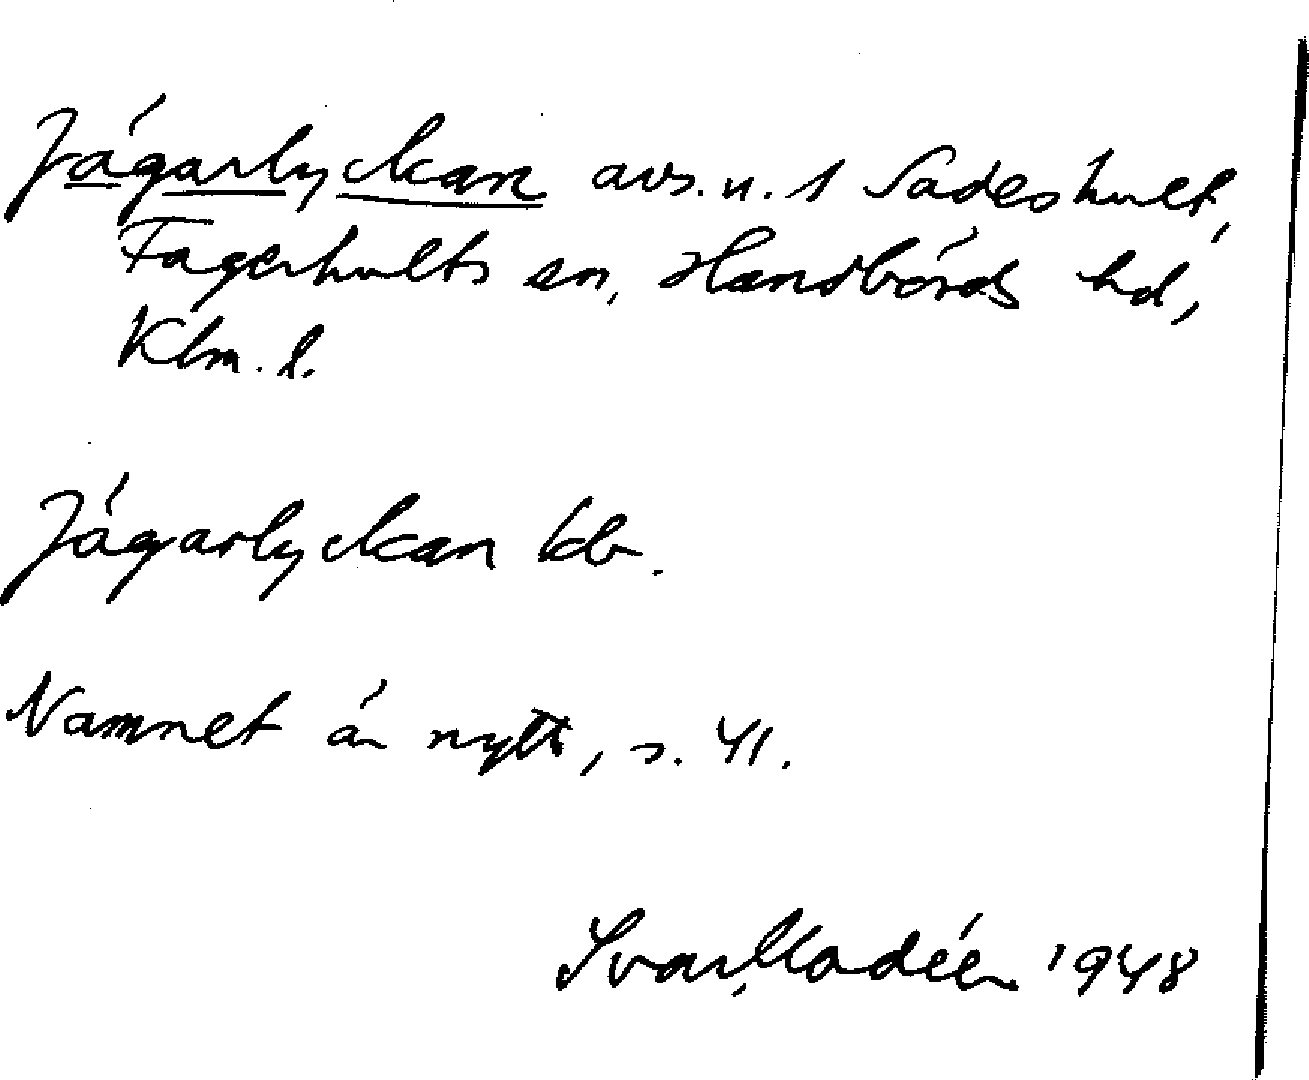 Jägarlyckan avs. u. 1 Sadeshult,
Fagerhults sn, Handbörds hd,
Klm. l.
Jägarlyckan kb.
Namnet är nytt, s. 41.
Ivar Modéer 1948